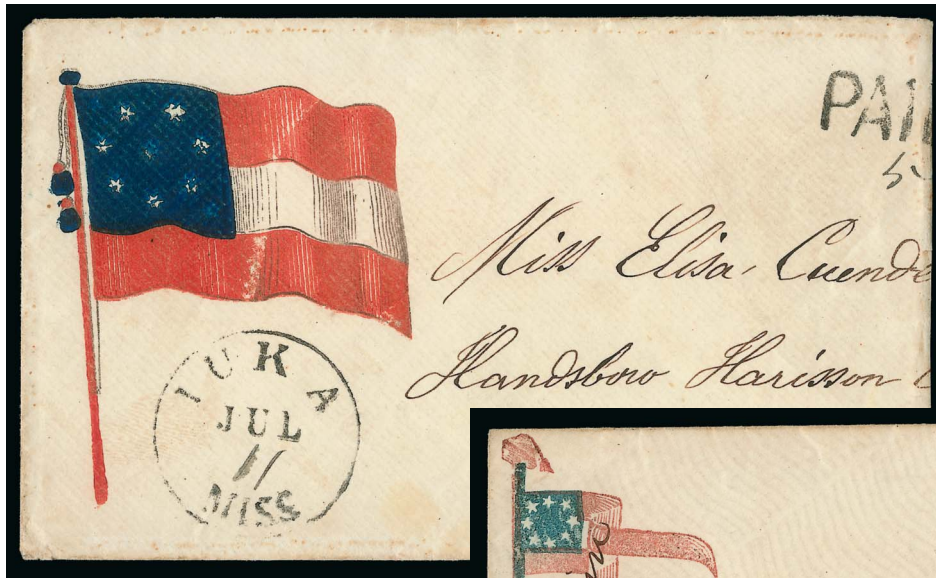 PAI
5
Miss Elisa Cuende
Handsboro Harisson
IUKA
JUL
11
MISS